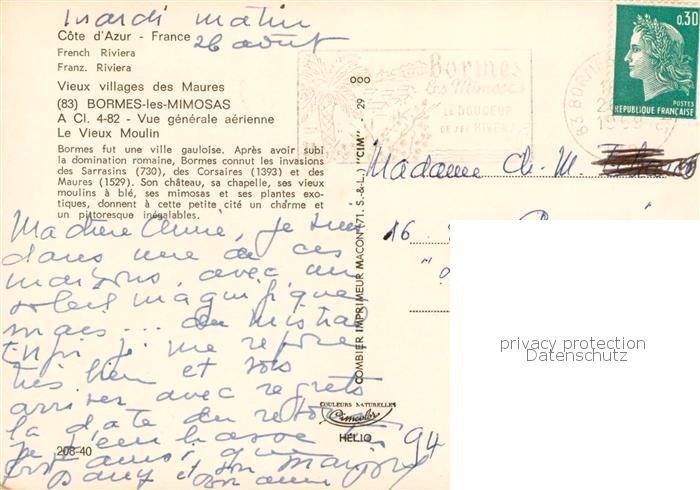 mardi matin
26 août
Côte d'Azur - France
French Riviera
Franz. Riviera
Vieux villages des Maures
(83) BORMES-les-MIMOSAS
A CI. 4-82 - Vue générale aérienne
Le Vieux Moulin
Bormes fut une ville gauloise. Après avoir subi
la domination romaine, Bormes connut les invasions
des Sarrasins (730), des Corsaires (1393) et des
Maures (1529). Son château, sa chapelle, ses vieux
moulins à blé, ses mimosas et ses plantes exo-
tiques, donnent à cette petite cité un charme et
un pittoresque inégalables.
Ma chère Annie, je suis
dans une de ces
maisons, avec un
soleil magnifique
mais... du Mistral
Enfin je me repose
très bien et vois
arriver avec regrets
la date du retour
je t'embrasse
Dany et son
208-40
COMBIER IMPRIMEUR MACON (71. S.-&-L.) "CIM" - 29
COULEURS NATURELLES
Cimcolor
HÉLIO
Bormes
les Mimosas
LA DOUCEUR
DE SES HIVERS
83 BORMES
0,30
POSTES
RÉPUBLIQUE FRANÇAISE
Madame Ch. M.
16
94
privacy protection
Datenschutz